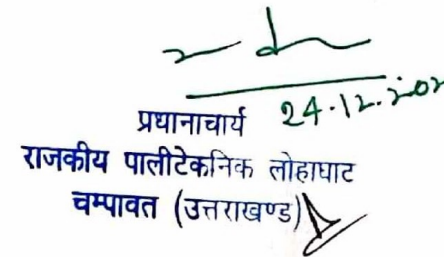 24.12.202
प्रधानाचार्य
राजकीय पालीटेकनिक लोहाघाट
चम्पावत (उत्तराखण्ड)